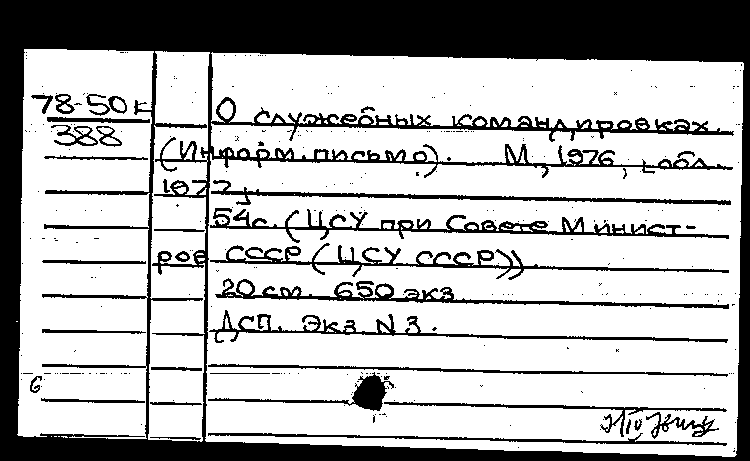 78-50к О служебных командировках.
388
(Информ. письмо). М., 1976, [обл.
1977].
54с. (ЦСУ при Совете Минист-
ров СССР (ЦСУ СССР)).
20 см. 650 экз.
ДСП. Экз N 3.
6